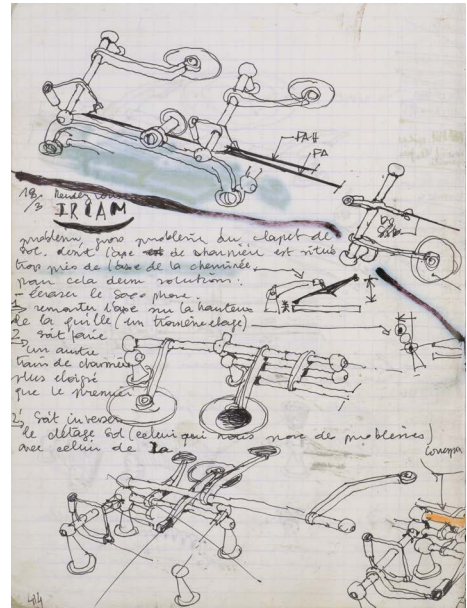 FA#
FA
18/3 Rendez-vous
IRCAM
problème, gros problème du clapet de
sol. dont l'axe de charnière est situé
trop près de l'axe de la cheminée.
pour cela deux solutions:
- écraser le saxophone.
1 remonter l'axe sur la hauteur
de la quille (un troisième étage)
2 soit faire
un autre
train de charnières
plus éloigné
que le premier
2) soit inverser
le clétage sol (celui qui nous pose de problèmes)
avec celui de la